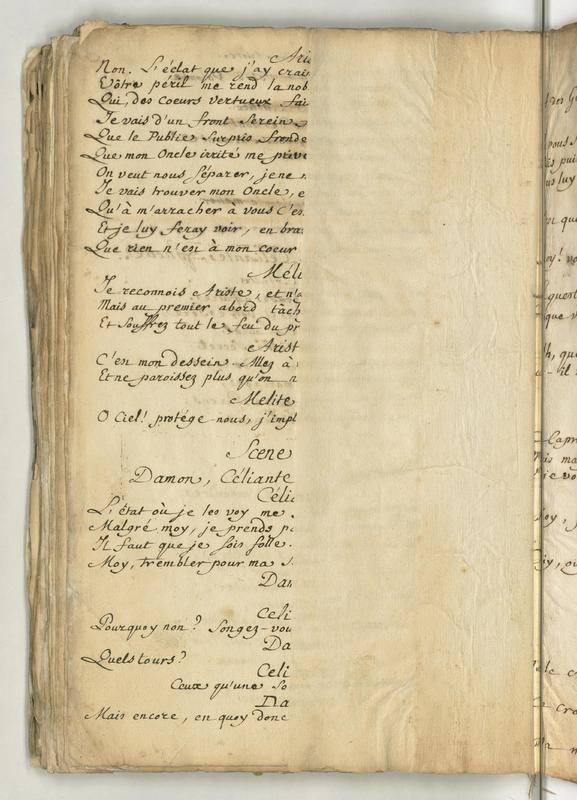 Aris
Non. L'éclat que j'ay crain
Vôtre péril me rend la nob
Qui, des coeurs vertueux fai
Je vais d'un front Serein
Que le Public Surpris fronde
Que mon Oncle irrité me prive
On veut nous Séparer, je ne
Je vais trouver mon Oncle, e
Qu'à m'arracher à vous C'es
Et je luy feray voir, en bra
Que rien n'est à mon coeur
Méli
Je reconnois Ariste, et n'a
Mais au premier abord tâch
Et Souffrez tout le feu du pr
Arist
C'est mon dessein. Allez à
Et ne paroissez plus qu'on n
Melite
O Ciel! protége nous, j'impl
Scene
Damon, Céliante
Céli
L'état où je les voy me
Malgré moy, je prends p
Il faut que je sois folle.
Moy, trembler pour ma S
Dam
Celi
Pourquoy non? Songez-vou
Da
Quels tours?
Celi
Ceux qu'une So
Da
Mais encore, en quoy donc